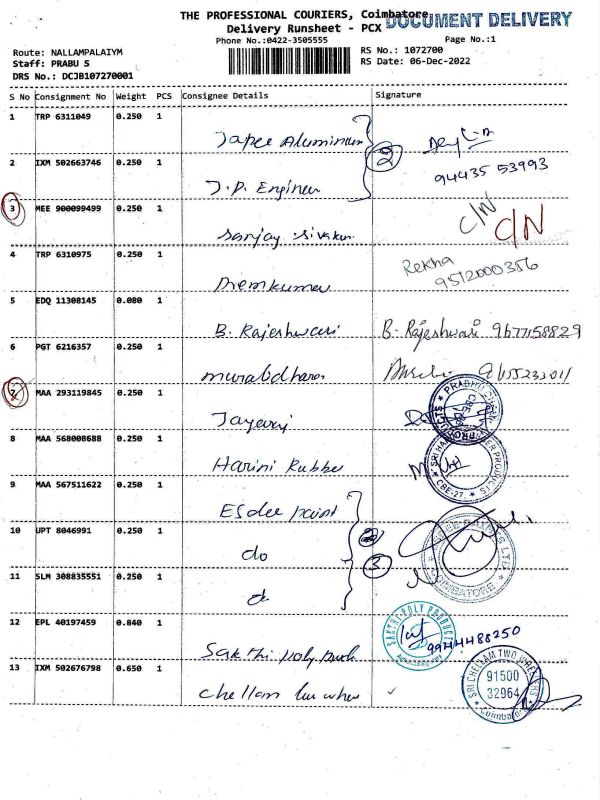 THE PROFESSIONAL COURIERS, Coimbatore
DOCUMENT DELIVERY
Delivery Runsheet - PCX
Phone No.:0422-3505555
Page No.:1
Route: NALLAMPALAIYM
RS No.: 1072700
Staff: PRABU S
RS Date: 06-Dec-2022
DRS No.: DCJB107270001
S No Consignment No Weight PCS Consignee Details Signature
1 TRP 6311049 0.250 1
Japee Aluminium
2
2 IXM 502663746 0.250 1
94435 53993
J.P. Engineer
3 MEE 900099499 0.250 1
C/N C/N
Sanjay Sivakum
4 TRP 6310975 0.250 1
Rekha
9512000356
Premkumar
5 EDQ 11308145 0.080 1
B. Rajeshwari B. Rajeshwari 9677158829
6 PGT 6216357 0.250 1
muralidharan
7 MAA 293119845 0.250 1
Jayaraj
8 MAA 568008688 0.250 1
Harini Rubber
CBE-27
9 MAA 567511622 0.250 1
Esdee paint
10 UPT 8046991 0.250 1
do
3
11 SLM 308835551 0.250 1
COIMBATORE
12 EPL 40197459 0.840 1
SAKTHI POLY PRODUCTS
9944488250
Sakthi poly Prod
13 IXM 502676798 0.650 1
SRI CHELLAM TWO WHEELERS
91500
32964
Coimbatore
Chellam two whee